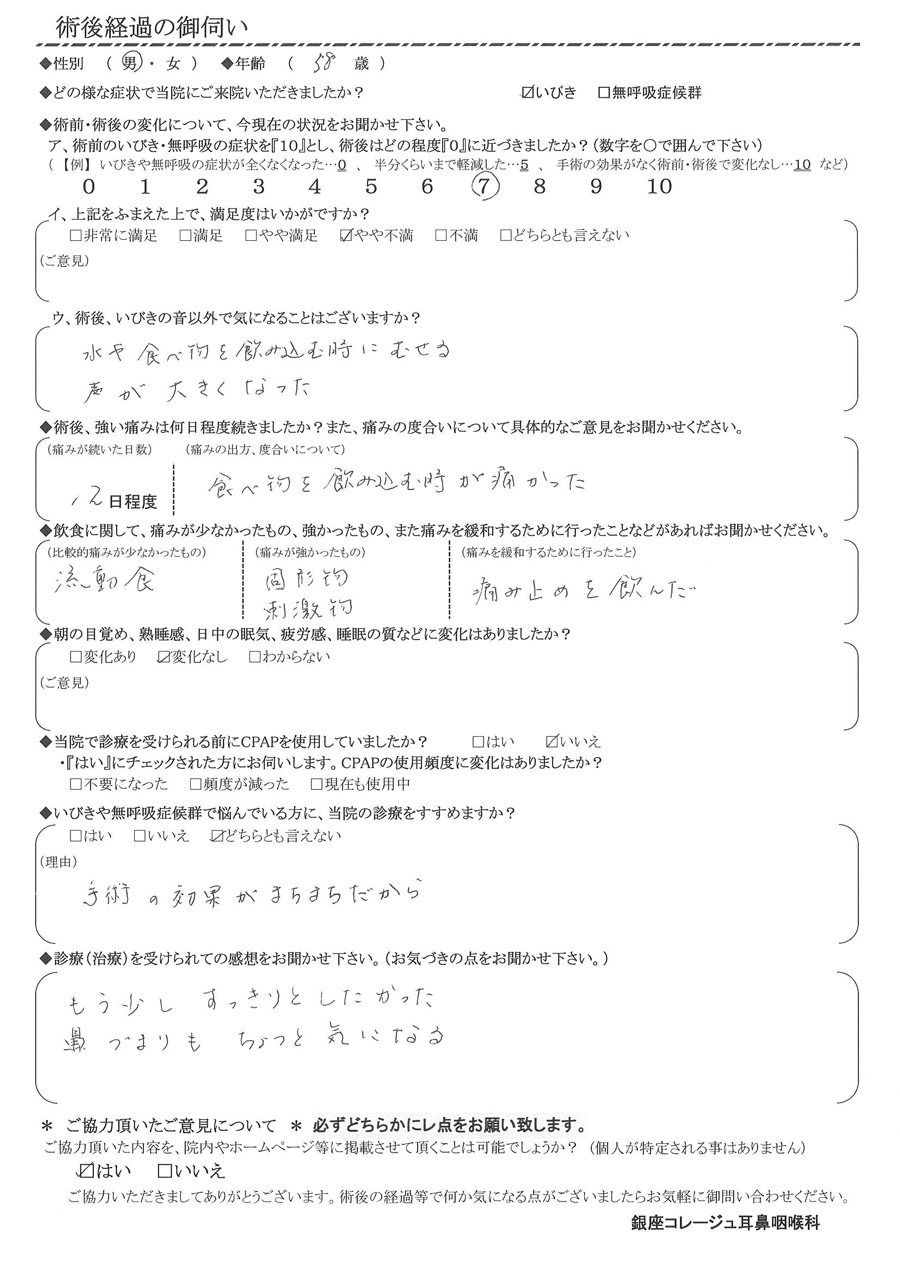 術後経過の御伺い
◆性別 ( 男 ・ 女 ) ◆年齢 ( 58 歳 )
◆どの様な症状で当院にご来院いただきましたか? ☑いびき □無呼吸症候群
◆術前・術後の変化について、今現在の状況をお聞かせ下さい。
ア、術前のいびき・無呼吸の症状を『10』とし、術後はどの程度『0』に近づきましたか?(数字を〇で囲んで下さい)
(【例】いびきや無呼吸の症状が全くなくなった…0 、 半分くらいまで軽減した…5 、 手術の効果がなく術前・術後で変化なし…10 など)
0 1 2 3 4 5 6 ⑦ 8 9 10
イ、上記をふまえた上で、満足度はいかがですか?
□非常に満足 □満足 □やや満足 ☑やや不満 □不満 □どちらとも言えない
(ご意見)
ウ、術後、いびきの音以外で気になることはございますか?
水や食べ物を飲み込む時にむせる
声が大きくなった
◆術後、強い痛みは何日程度続きましたか?また、痛みの度合いについて具体的なご意見をお聞かせください。
(痛みが続いた日数) (痛みの出方、度合いについて)
12日程度 食べ物を飲み込む時が痛かった
◆飲食に関して、痛みが少なかったもの、強かったもの、また痛みを緩和するために行ったことなどがあればお聞かせください。
(比較的痛みが少なかったもの) (痛みが強かったもの) (痛みを緩和するために行ったこと)
流動食 固形物 痛み止めを飲んだ
刺激物
◆朝の目覚め、熟睡感、日中の眠気、疲労感、睡眠の質などに変化はありましたか?
□変化あり ☑変化なし □わからない
(ご意見)
◆当院で診療を受けられる前にCPAPを使用していましたか? □はい ☑いいえ
・『はい』にチェックされた方にお伺いします。CPAPの使用頻度に変化はありましたか?
□不要になった □頻度が減った □現在も使用中
◆いびきや無呼吸症候群で悩んでいる方に、当院の診療をすすめますか?
□はい □いいえ ☑どちらとも言えない
(理由)
手術の効果がまちまちだから
◆診療(治療)を受けられての感想をお聞かせ下さい。(お気づきの点をお聞かせ下さい。)
もう少しすっきりとしたかった
鼻づまりもちょっと気になる
＊ ご協力頂いたご意見について ＊ 必ずどちらかにレ点をお願い致します。
ご協力頂いた内容を、院内やホームページ等に掲載させて頂くことは可能でしょうか? (個人が特定される事はありません)
☑はい □いいえ
ご協力いただきましてありがとうございます。術後の経過等で何か気になる点がございましたらお気軽に御問い合わせください。
銀座コレージュ耳鼻咽喉科